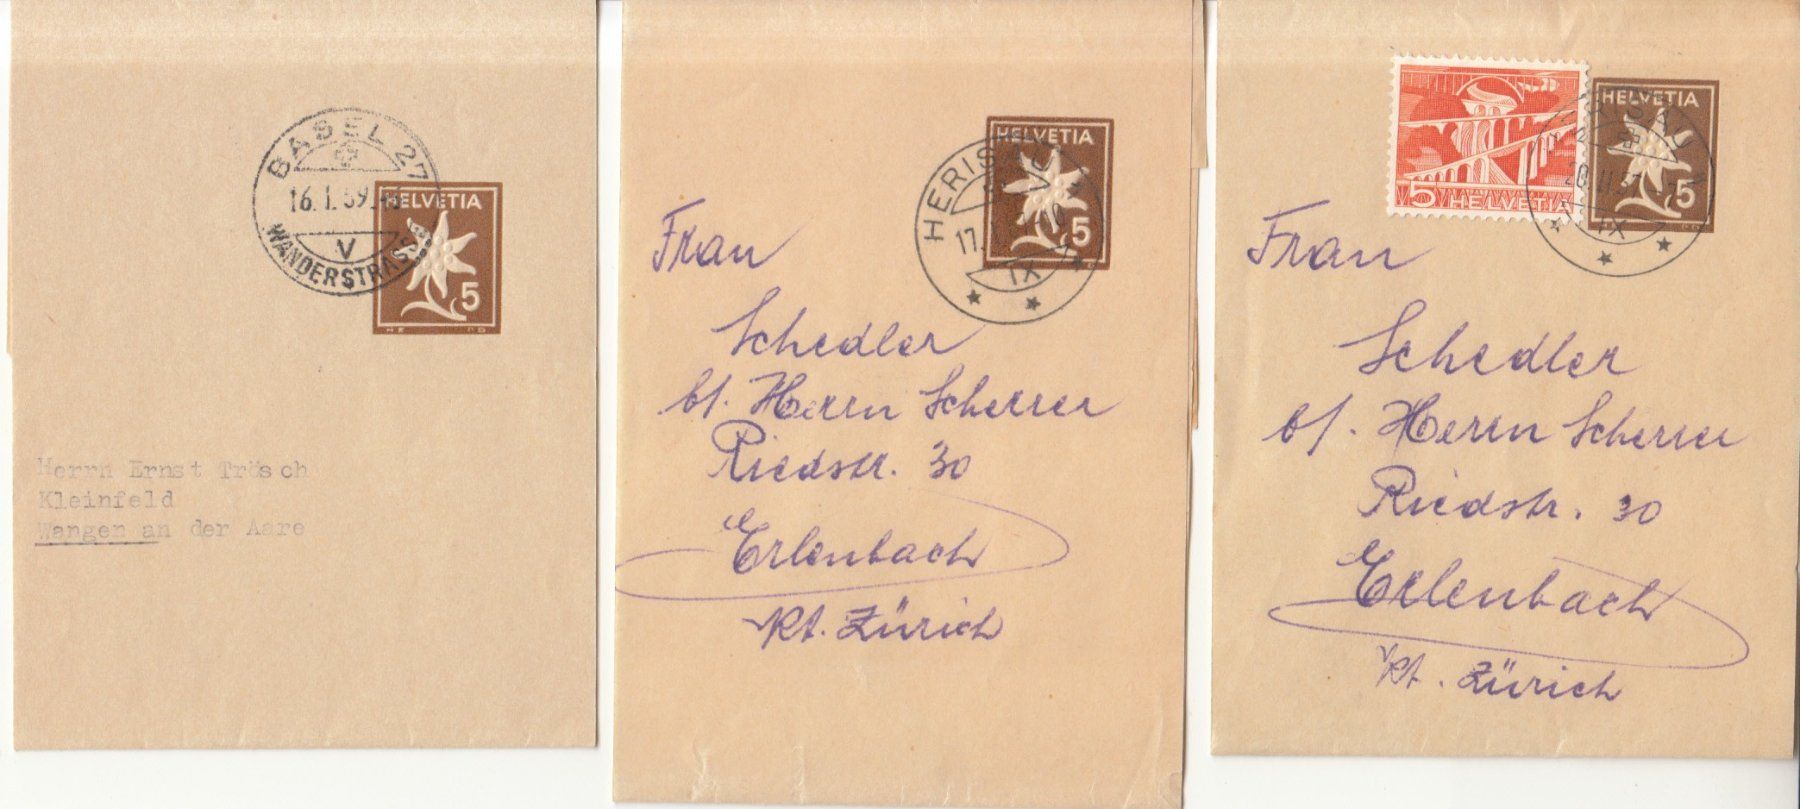 BASEL 27
16. I. 59.
V
WANDERSTRASSE
HELVETIA
5
Herrn Ernst Trösch
Kleinfeld
Wangen an der Aare
HELVETIA
5
HERISAU
17.
IX
Frau
Schedler
b/. Herrn Scherrer
Riedstr. 30
Erlenbach
Kt. Zürich
5 HELVETIA
HELVETIA
5
HERISAU
20. II. 51
IX
Frau
Schedler
b/. Herrn Scherrer
Riedstr. 30
Erlenbach
Kt. Zürich